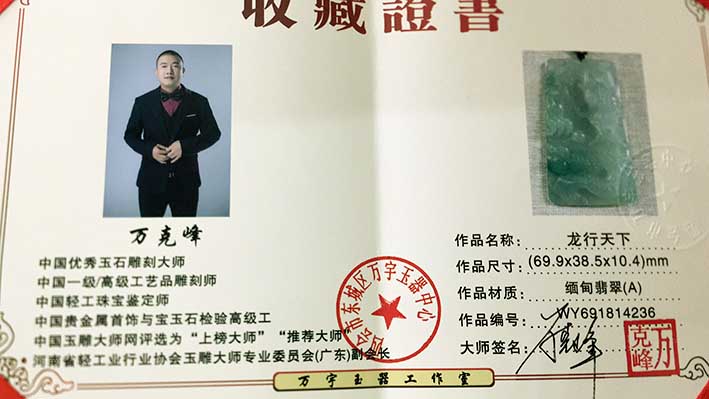 收藏證書
万克峰
中国优秀玉石雕刻大师
中国一级/高级工艺品雕刻师
中国轻工珠宝鉴定师
中国贵金属首饰与宝玉石检验高级工
中国玉雕大师网评选为“上榜大师”“推荐大师”
河南省轻工业行业协会玉雕大师专业委员会(广东)副会长
四会市东城区万宇玉器中心
作品名称: 龙行天下
作品尺寸: (69.9x38.5x10.4)mm
作品材质: 缅甸翡翠(A)
作品编号: WY691814236
大师签名:
万克峰
万宇玉器工作室